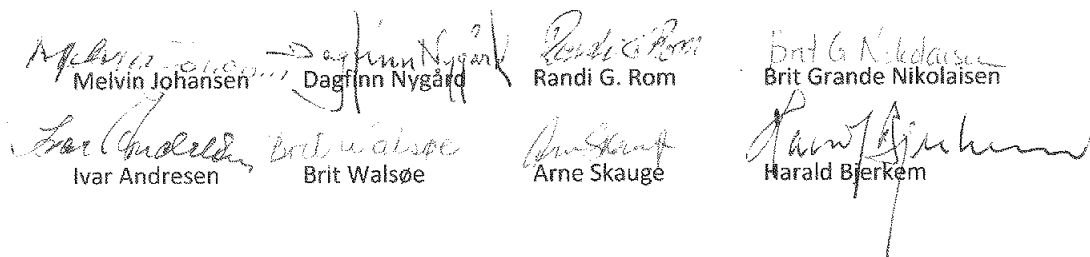 Melvin Johansen Dagfinn Nygård Randi G Rom Brit G Nikolaisen
Melvin Johansen Dagfinn Nygård Randi G. Rom Brit Grande Nikolaisen
Ivar Andresen Brit Walsøe Arne Skauge Harald Bjerkem
Ivar Andresen Brit Walsøe Arne Skauge Harald Bjerkem